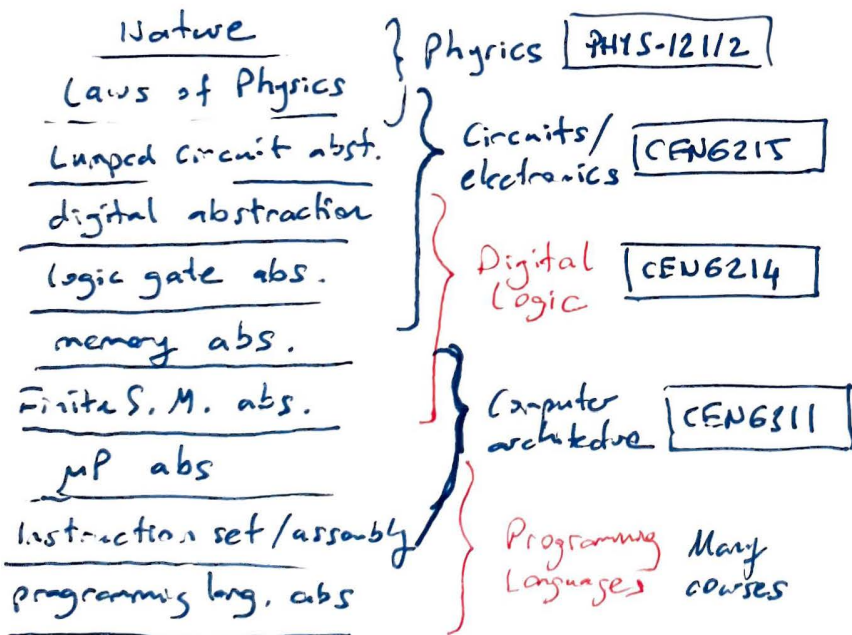 Nature
Laws of Physics
Lumped circuit abst.
digital abstraction
logic gate abs.
memory abs.
Finite S. M. abs.
μP abs
Instruction set/assembly
programming lang. abs
Physics PHYS-121/2
Circuits/
electronics
CENG215
Digital
Logic
CENG214
Computer
architecture
CENG311
Programming
Languages
Many
courses